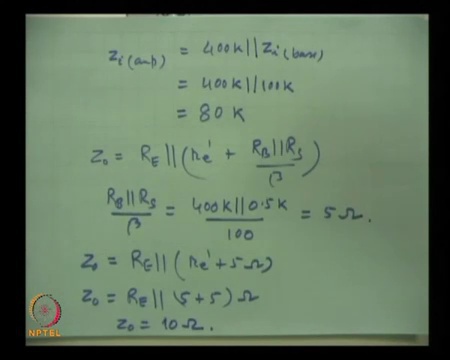 Zi(amp) = 400K || Zi(base)
= 400K || 100K
= 80 K
Zo = RE || (re' + RB||RS / β)
RB||RS / β = 400K || 0.5K / 100 = 5 Ω.
Zo = RE || (re' + 5Ω)
Zo = RE || (5+5) Ω
Zo = 10 Ω.
NPTEL